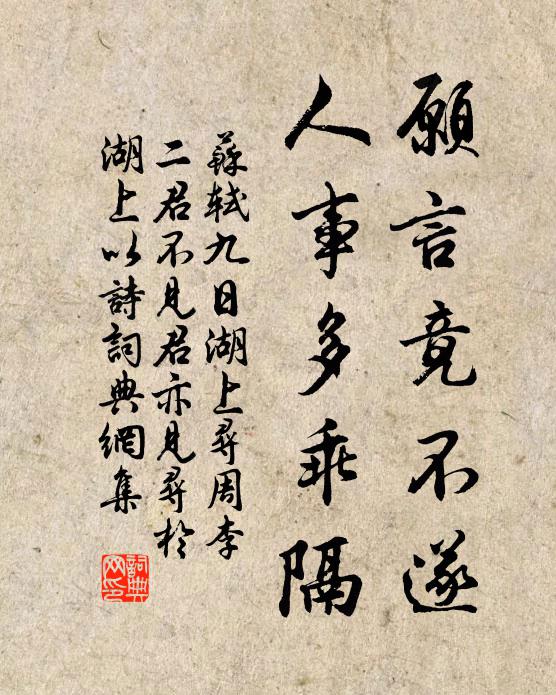 願言竟不遂
人事多乖隔
蘇軾九日湖上尋周李
二君不見君亦見尋於
湖上以詩詞典網集
詞典
网印